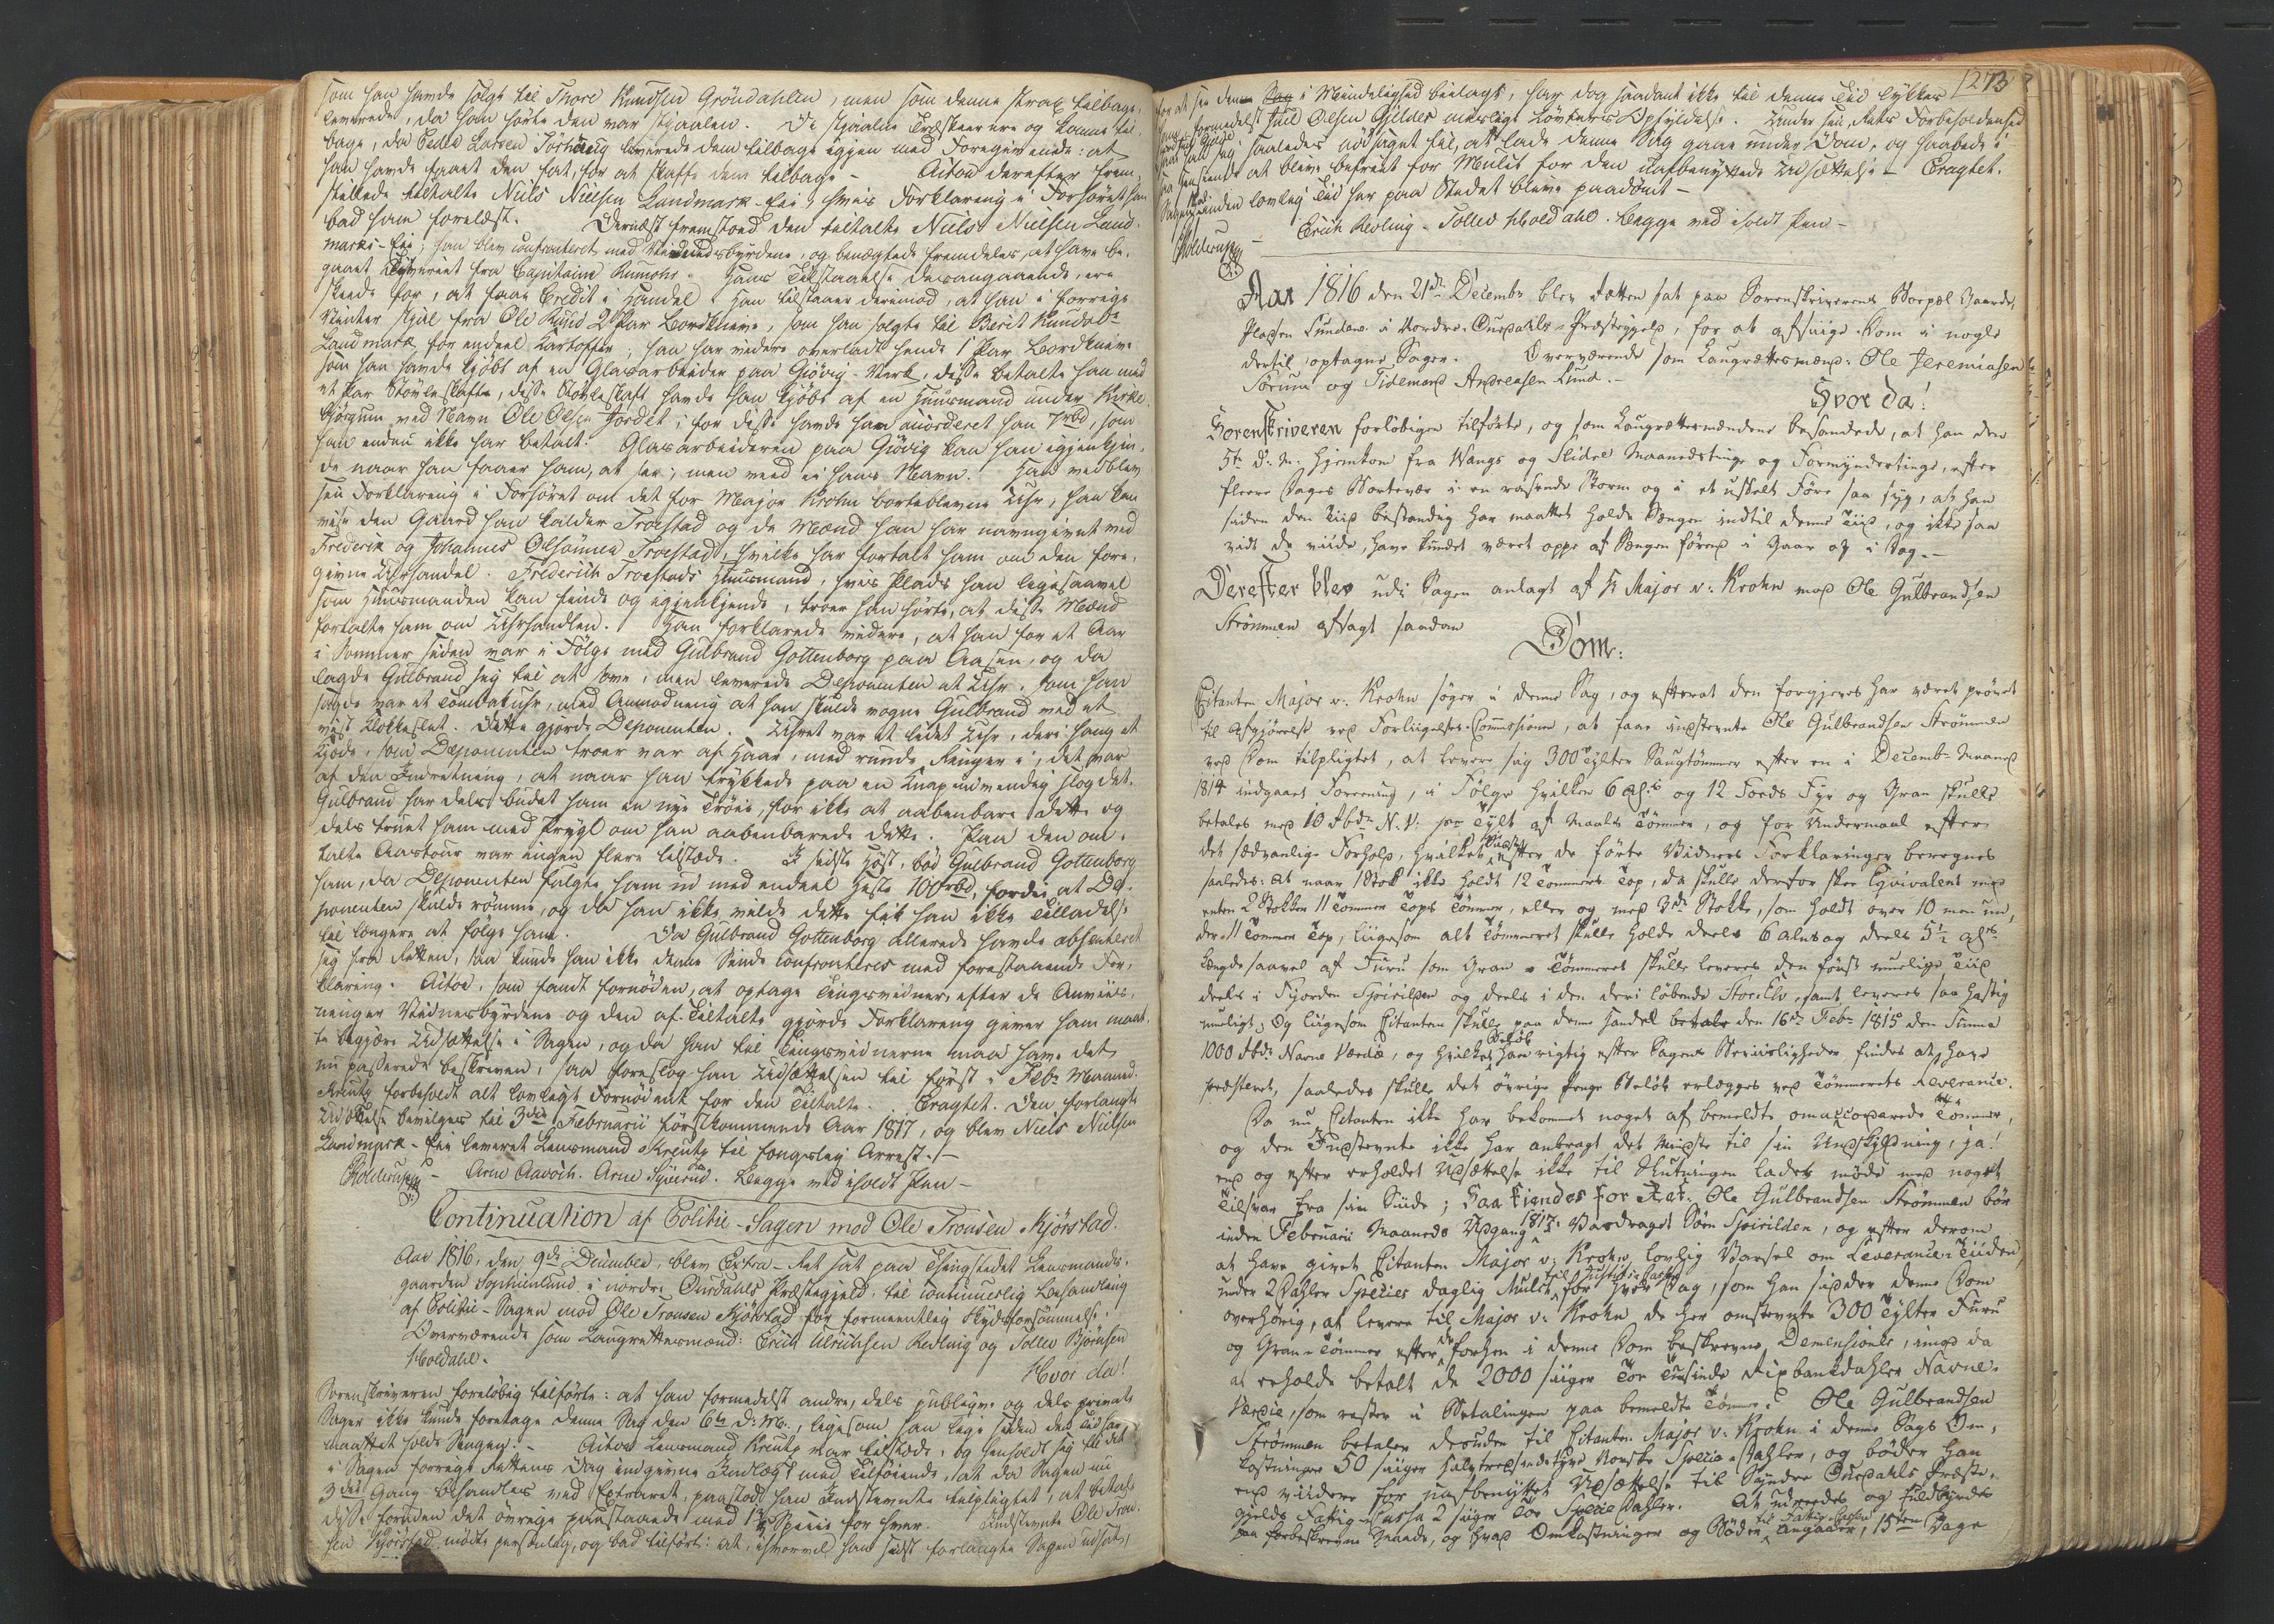 som han havde solgt til Thore Knudsen Gröndahlen, men som denne strax tilbage-
leverede, da han hørte den var stjaalen. De stjaalne Træskeer ere og komne til-
bage, da Peder Larsen Jörhaug leverede dem tilbage igjen med Foregivende: at
han havde faaet den fat, for at skaffe dem tilbage - Actor derefter frem-
stillede tiltalte Niels Nielsen Landmark-Eie, hvis Forklaring i Forhøret han
bad ham forelæst. Dernæst fremstoed den tiltalte Niels Nielsen Land-
marks-Eie; han blev confronteret med Vidnesbyrdene, og benægtede fremdeles, at have be-
gaaet Tyveriet fra Capitaine Rumohr. Hans Tilstaaelse desangaaende, ere
skeede for, at faae Credit i Handel. Han tilstaaer derimod, at han i forrige
Vinter stjal fra Ole 2 Par Bordknive, som han solgte til Berit Knudsdr
Landmark for endeel Kartofler; han har videre overladt hende 1 Par Bordknive
som han havde kjøbt af en Glasarbeider paa Giövig-Verk, disse betalte han med
et Par Støvleskafter, disse Støvleskaft havde han kjøbt af en Huusmand under Kirke-
bjørgum ved Navn Ole Olsen Jordet; for disse havde han accorderet han 7rbd, som
han endnu ikke har betalt. Glasarbeideren paa Giövig kan han igjenkjen-
de naar han faaer ham at see; men veed ei hans Navn. Han vedblev
sin Forklaring i Forhøret om det for Major Krohn bortblevne Uhr, han kan
vise den Gaard han kalder Troestad og de Mænd han har navngivet ved
Frederik og Johannes Olsönner Troestad, hvilke har fortalt ham om den fore-
givne Uhrhandel. Frederich Troestads Huusmand, hvis Plads han ligesaavel
som Huusmanden kan finde og igjenkjende, troer han hørte, at disse Mænd
fortalte ham om Uhrhandlen. Han forklarede videre, at han for et Aar
i Sommer siden var i Følge med Gulbrand Gottenborg paa Aasen, og da
lagde Gulbrand sig til at sove, men leverede Deponenten et Uhr, som han
sagde var et Tombakuhr, med Anmodning at han skulde vogne Gulbrand ved et
vist Klokkeslet. Dette gjorde Deponenten. Uhret var et lidet Uhr, deri hang et
Kjæde, som Deponenten troer var af Haar, med runde Ringer i, det var
af den Indretning, at naar han trykkede paa en Knap indvendig slog det.
Gulbrand har dels budet ham en nye Trøie, for ikke at aabenbare dette og
dels truet ham med Prygl om han aabenbarede dette. Paa den om-
talte Aastour var ingen flere tilstæde. I sidste Høst, bød Gulbrand Gottenborg
ham, da Deponenten fulgte ham ud med endeel Heste 100rbd, fordi at De-
ponenten skulde rømme, og da han ikke vilde dette fik han ikke Tilladelse
til længere at følge ham. Da Gulbrand Gottenborg allerede havde absenteret
sig fra Retten, saa kunde han ikke denne Sende confronteres med forestaaende For-
klaring. Actor, som fandt fornøden, at optage Tingsvidner, efter de Anviis-
ninger Vidnesbyrdene og den af Tiltalte gjorde Forklaring giver ham maat-
te begjære Udsættelse i Sagen, og da han til Tingsvidnerne maa have det
nu passerede beskreven, saa foreslog han Udsættelsen til først i Febr Maaned.
Kreutz forbeholdt alt lovligt Fornødent for den Tiltalte. Eragtet. Den forlangte
Udsættelse bevilges til 3die Februarii førstkommende Aar 1817, og blev Niels Nielsen
Landmark-Eie leveret Lensmand Kreutz til fængslig Arrest./-
Arne Aavöih. Arne Begge med iholdt Pen -
Continuation af Politie-Sagen mod Ole Tronsen Kjörstad.
Aar 1816, den 9de December, blev Extra-Ret sat paa Thingstedet Lensmands-
gaarden Sophienlund i nordre Ourdahls Præstegjeld, til continuerlig Behandling
af Politie-Sagen mod Ole Tronsen Kjörstad for formeentlig Skydsforsømmelse.
Overværende som Laugrettesmænd: Erich Ulrichsen Redling og Tollev Bjönsen
Hvoldahl.
Hvor da!
Sorenskriveren foreløbig tilførte: at han formedelst andre, dels publiqve og dels private
Sager ikke kunde foretage denne Sag den 6te d: M:, ligesom han lige siden den Tid har
maattet holde Sengen. - Actor Lensmand Kreutz var tilstæde, og henholdt sig til det
i Sagen forrige Rettens Dag indgivne Indlæg med Tilføiende, at da Sagen nu
3die Gang behandles ved Extraret, paastod han Indstevnte tilpligtet, at betale
disse foruden det øvrige paastaaende med Specie for hver. Indstevnte Ole Tron-
sen Kjörstad mødte personlig, og bad tilført: at, ihvorvel han sidst forlangte Sagen udsat,
273
for at see denne Sag i Mindelighed bielagt, har dog saadant ikke til denne Tid lykkes
ham formedelst Joel Olsen Gilders Løvters Opfyldelse. Under sin Rets Forbeholdenhed
saae han sig saaledes nødsaget til, at lade denne Sag gaae under Dom, og haabede i
saa Henseende at blive befriet for Mulct for den uafbenyttede Udsættelse - Eragtet.
Sagen skal inden lovlig Tid her paa Stedet blive paadömt -
Erich Redling. Tollev Hvoldahl. Begge med iholdt Pen -
Aar 1816 den 21de Decembr blev Retten sat paa Sorenskriverens Boepæl Gaarde-
Pladsen Lunden i Nordre-Ourdahls Præstegjeld, for at afsiige Dom i nogle
dertil optagne Sager. Overværende som Laugrættesmænd: Ole Jeremiasen
Sörum og Tidemand Andreasen Lund. -
Hvor da!
Sorenskriveren forløbigen tilførte, og som Laugrættesmændene bekræftede, at han den
5te d: M: hjemkom fra Wangs og Slidre Maanedstinge og Formyndertinge, efter
fleere Dages Bortevær i en rasende Storm og i et uskelt Føre saa syg, at han
siden den Tiid bestandig har maattet holde Sengen indtil denne Tiid, og ikke saa
vidt de viide, have kundet været oppe af Sengen førend i Gaar og i Dag. -
Derefter blev udi Sagen anlagt af Hr Major v: Krohn mod Ole Gulbrandsen
Strömmen afsagt saadan
Dom:
Citanten Major v: Krohn søger i denne Sag, og efterat den forgjeves har været prøvet
til Afgjørelse ved Forligelses-Commissionen, at faae indstevnte Ole Gulbrandsen Strömmen
ved Dom tilpligtet, at levere sig 300de Tylter Saugtømmer efter en i Decembr Maaned
1814 indgaaet Forening, i Følge hvilken 6 Al: og 12 Toms Fyr og Gran skulle
betales med 10 Rbdr N. V: pr Tylt af Maals Tømmer, og for Undermaal efter
det sædvanlige Forhold, hvilket efter de førte Vidners Forklaringer beregnes
saaledes: At naar 1 Stok ikke holdt 12 Tommers Top, da skulle derfor skee Eqvivalent med
enten 2 Stokker 11 Tommer Tops Tømmer, eller og med 3de Stokke, som holdt over 10 men un-
der 11 Tommer Top, liigesom alt Tømmeret skulle holde deels 6 Alns og deels 5½ Al:
Længde saavel af Furu som Gran - Tømmeret skulle leveres den først muelige Tiid
deels i Fjorden Spirilden og deels i den deri løbende Stor-Elv, samt leveres saa hastig
mueligt; Og liigesom Citanten skulle paa denne Handel betale den 16de Febr 1815 den Summa
1000 Rbdr Navne Værdie, og hvilket Beløb han rigtig efter Sagens Beviisligheder findes at have
præsteret, saaledes skulle det øvrige Penge Beløb erlægges ved Tømmerets Leverance.
Da nu Citanten ikke har bekommet noget af bemeldte omaccorderede Tømmer,
og den Indstevnte ikke har anbragt det Mindste til sin Undskyldning, ja!
end og efter erholdet Udsættelse ikke til Slutningen ladet møde med noget
Tilsvar fra sin Siide; Saa kiendes for Ret: Ole Gulbrandsen Strömmen bør
inden Februarii Maaneds Udgang 1817. Vasdraget Søen Spirilden, og efter derom
at have givet Citanten Major v: Krohn lovlig Varsel om Leverance-Tiiden,
under 2 Dahler Species daglig Mulct til Justits-Cassen for hver Dag, som han sidder denne Dom
overhørig, at levere til Major v: Krohn de her omstevnte 300 Tylter Furu
og Gran-Tømmer efter de forhen i denne Dom beskrevne Demensioner, imod da
at erholde betalt de 2000 siiger Toe Tusinde Rixbankdahler Navne-
Værdie, som rester i Betalingen paa bemeldte Tømmer. Ole Gulbrandsen
Strömmen betaler desuden til Citanten Major v: Krohn i denne Sags Om-
kostninger 50 siiger halvtredsindstyve Norske Specie-Dahler, og bøder han
end viidere for uafbenyttet Udsættelse til Syndre Ourdahls Præste-
gjelds Fattig-Cassa 2 siiger Toe Specie Dahler. At udreedes og fuldbyrdes
paa forbeskrevne Maade, og hvad Omkostninger og Bøder til Fattig-Cassen angaaer, 15ten Dage